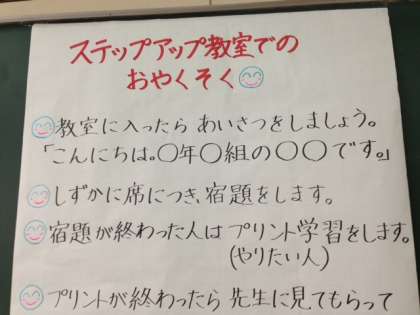 ステップアップ教室での
おやくそく
教室に入ったら あいさつをしましょう。
「こんにちは。〇年〇組の〇〇です。」
しずかに席につき、宿題をします。
宿題が終わった人は プリント学習をします。
(やりたい人)
プリントが終わったら 先生に見てもらって